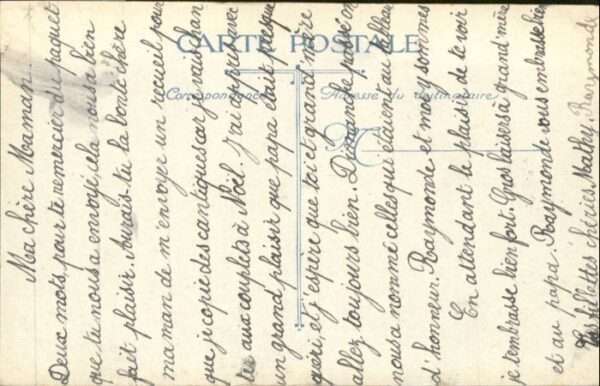 CARTE POSTALE
Correspondance
Adresse du destinataire
Ma chère Maman
Deux mots pour te remercier du paquet
que tu nous a envoyé, cela nous a bien
fait plaisir. Aurais-tu la bonté chère
maman de m'envoyer un recueil pour
que je copie des cantiques car je vais chan
ter aux couplets à Noël. J'ai appris avec
un grand plaisir que papa était presque
guéri, et j'espère que toi et grand'mère
allez toujours bien. Dimanche passé on
nous a nommé celles qui étaient au tableau
d'honneur. Raymonde et moi y sommes
En attendant le plaisir de te voir
je t'embrasse bien fort. Gros baisers à grand'mère
et au papa. Raymonde vous embrasse bien
Tes fillettes chéries, Mathy, Raymonde